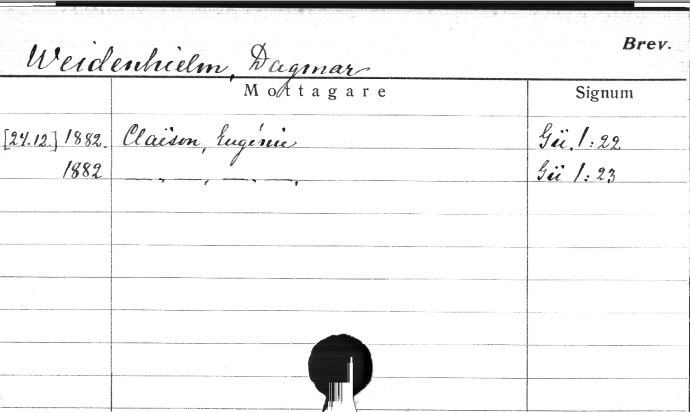 Brev.
Weidenhielm, Dagmar
Mottagare Signum
[24.12.] 1882. Claëson, Eugénie Gü. 1:22
1882 — „ — , — „ — , Gü 1:23